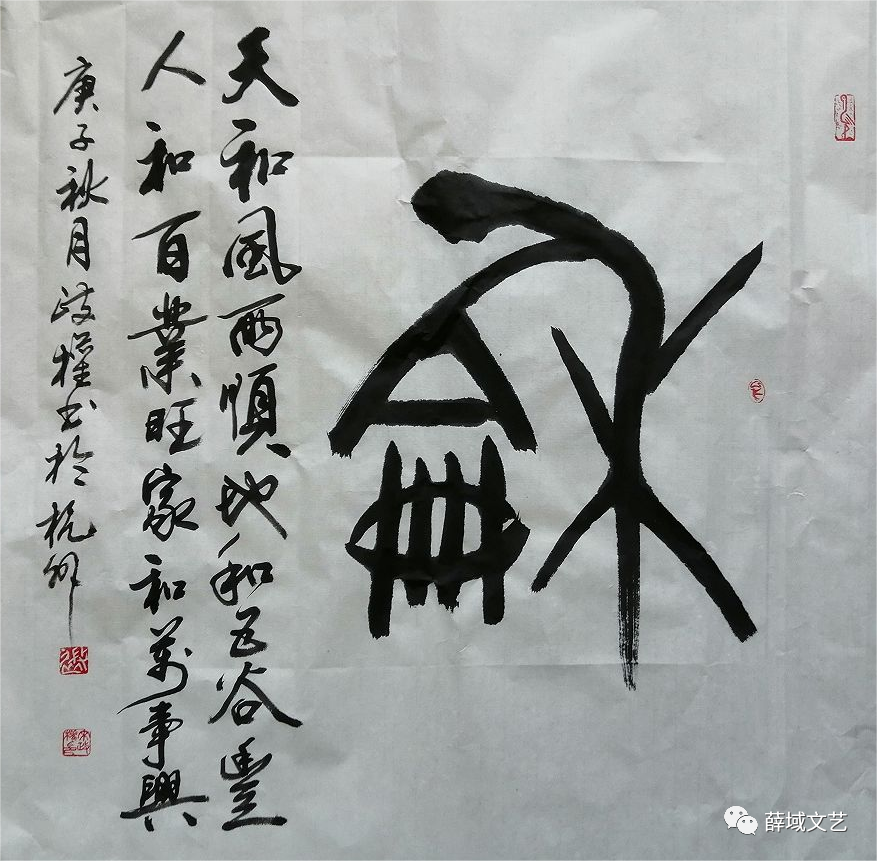 龢
天和風雨順地和五谷豐
人和百業旺家和萬事興
庚子秋月政權书於杭州
薛域文艺